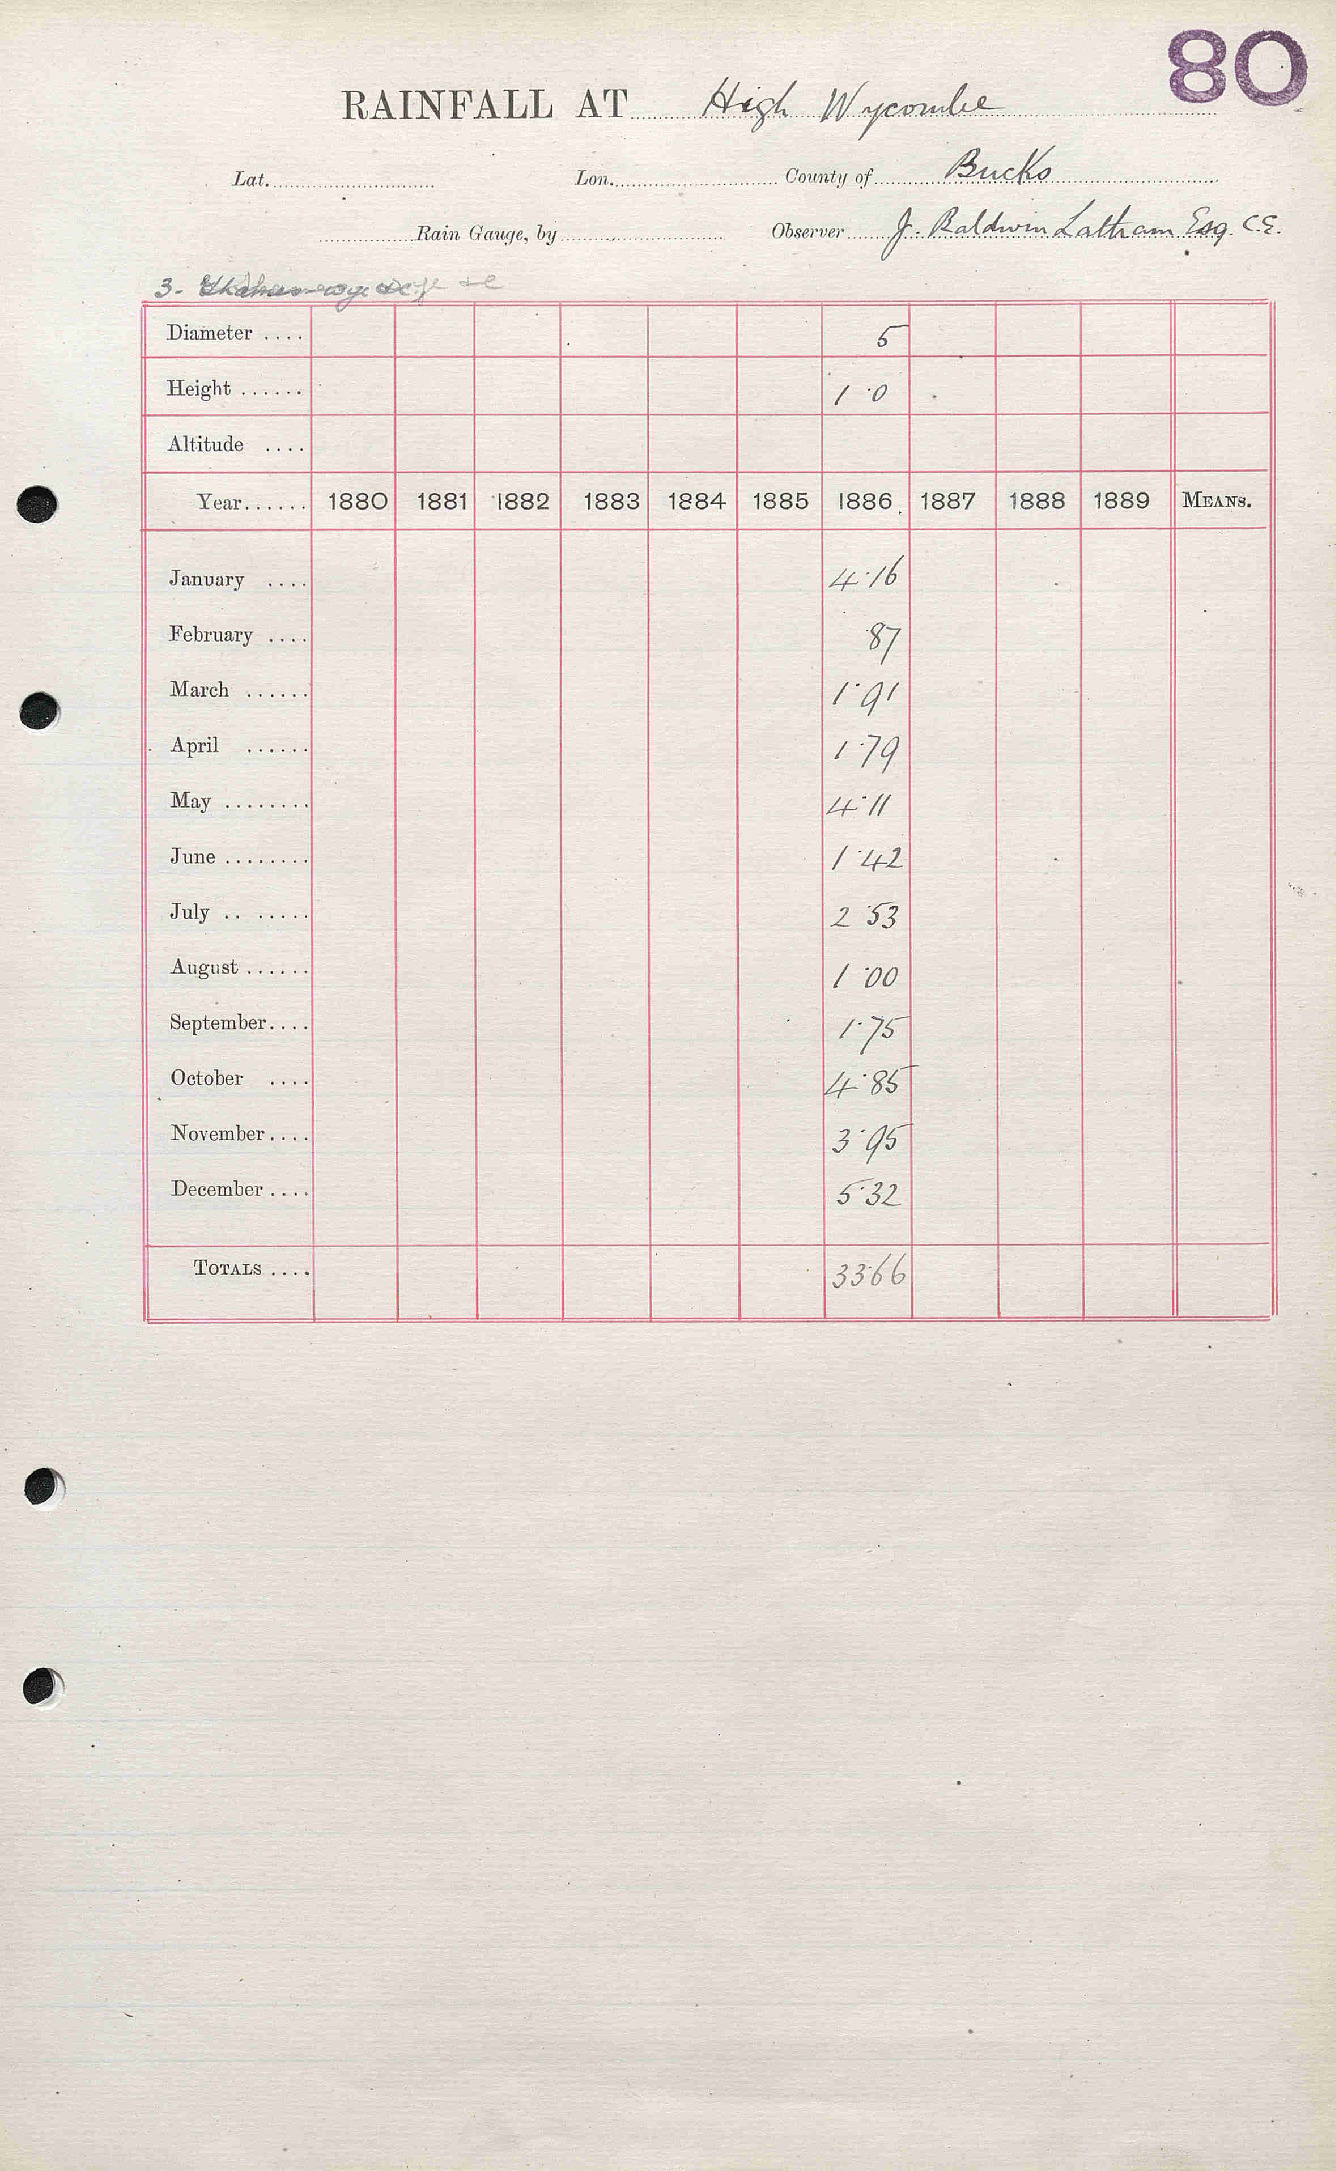 80
RAINFALL AT High Wycombe
Lat. Lon. County of Bucks
Rain Gauge, by Observer J. Baldwin Latham Esq. C.E.
3.
Diameter .... 5
Height ...... 1 ·0
Altitude ....
Year...... 1880 1881 1882 1883 1884 1885 1886 1887 1888 1889 MEANS.
January .... 4·16
February .... ·87
March ...... 1·91
April ...... 1·79
May ........ 4·11
June ........ 1·42
July .. ...... 2·53
August ...... 1·00
September.... 1·75
October .... 4·85
November.... 3·95
December .... 5·32
TOTALS .... 33·66